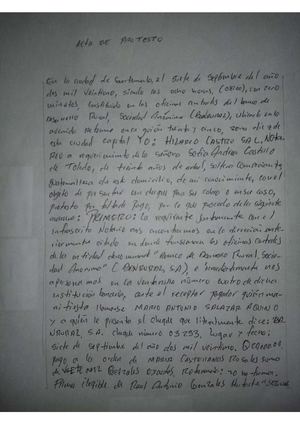 ACTA DE PROTESTO
En la ciudad de Guatemala, el siete de septiembre del año
dos mil veintiuno, siendo las ocho horas, con cero
minutos, constituido en las oficinas centrales del banco de
Desarrollo Rural, Sociedad Anónima (BANRURAL), ubicado en la
avenida Reforma guión treinta y cinco, zona diez de
esta ciudad capital YO: HILARIO CASTRO SAL, Notario
a requerimiento de la señora Sofia Castillo
de Toledo, de treinta años de edad, soltera, Comerciante,
guatemalteca de este domicilio, de mi conocimiento, con el
objeto de presentar un cheque para su cobro o en su caso,
protesto por falta de pago, por lo que procedo de la siguiente
manera: PRIMERO: La requirente juntamente con el
infrascrito Notario nos encontramos en la dirección an-
teriormente citada en donde funcionan las oficinas centrales
de la entidad "Banco de Desarrollo Rural, Socie-
dad Anónima" (BANRURAL, S.A.), e inmediatamente nos
apersonamos en la ventanilla número cuatro de dicha
institución bancaria, ante el receptor pagador quien ma-
nifiesta llamarse MARIO ANTONIO SALAZAR
y a quien le presento el cheque que literalmente dice:
S.A. cheque número 03253, lugar y fecha:
siete de septiembre del año dos mil veintiuno.
pago a la orden de MARIA CASTELLANOS suma
de Quetzales exactos
Firma ilegible de Raul Antonio Gonzales